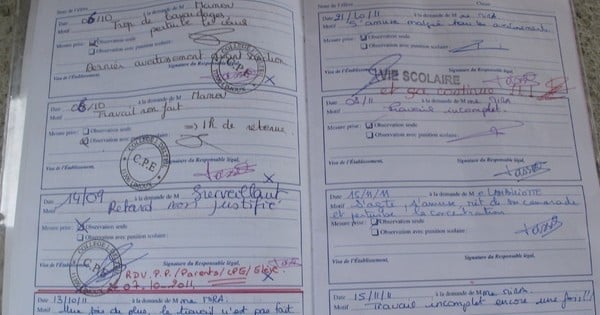 Date 06/10 à la demande de M Mamou
Motif Trop de bavardages
perturbe le cours
Mesure prise : Observation seule
Observation avec punition scolaire :
Dernier avertissement avant sanction
Visa de l'Établissement, Signature du Responsable légal,
Date 06/10 à la demande de M Mamou
Motif Travail non fait
Mesure prise : Observation seule
Observation avec punition scolaire : => 1h de retenue
Visa de l'Établissement, Signature du Responsable légal,
C.P.E
Date 14/09 à la demande de M Surveillant
Motif Retard non justifié
Mesure prise : Observation seule
Observation avec punition scolaire :
Visa de l'Établissement, Signature du Responsable légal,
C.P.E
RDV P.P./Parents/CPE/Elève
07-10-2011
Date 13/10/11 à la demande de M me
Motif Une fois de plus, le travail n'est pas fait
Date 21/10/11 à la demande de M me
Motif S'amuse malgré tous les avertissements
Mesure prise : Observation seule
Observation avec punition scolaire :
Visa de l'Établissement, Signature du Responsable légal,
VIE SCOLAIRE
et ça continue !
Date 08/11 à la demande de M me
Motif Travail incomplet.
Mesure prise : Observation seule
Observation avec punition scolaire :
Visa de l'Établissement, Signature du Responsable légal,
Date 15/11/11 à la demande de M
Motif S'agite, s'amuse, rit de son camarade
et perturbe la concentration
Mesure prise : Observation seule
Observation avec punition scolaire :
Visa de l'Établissement, Signature du Responsable légal,
Date 15/11/11 à la demande de M me
Motif Travail incomplet encore une fois!!